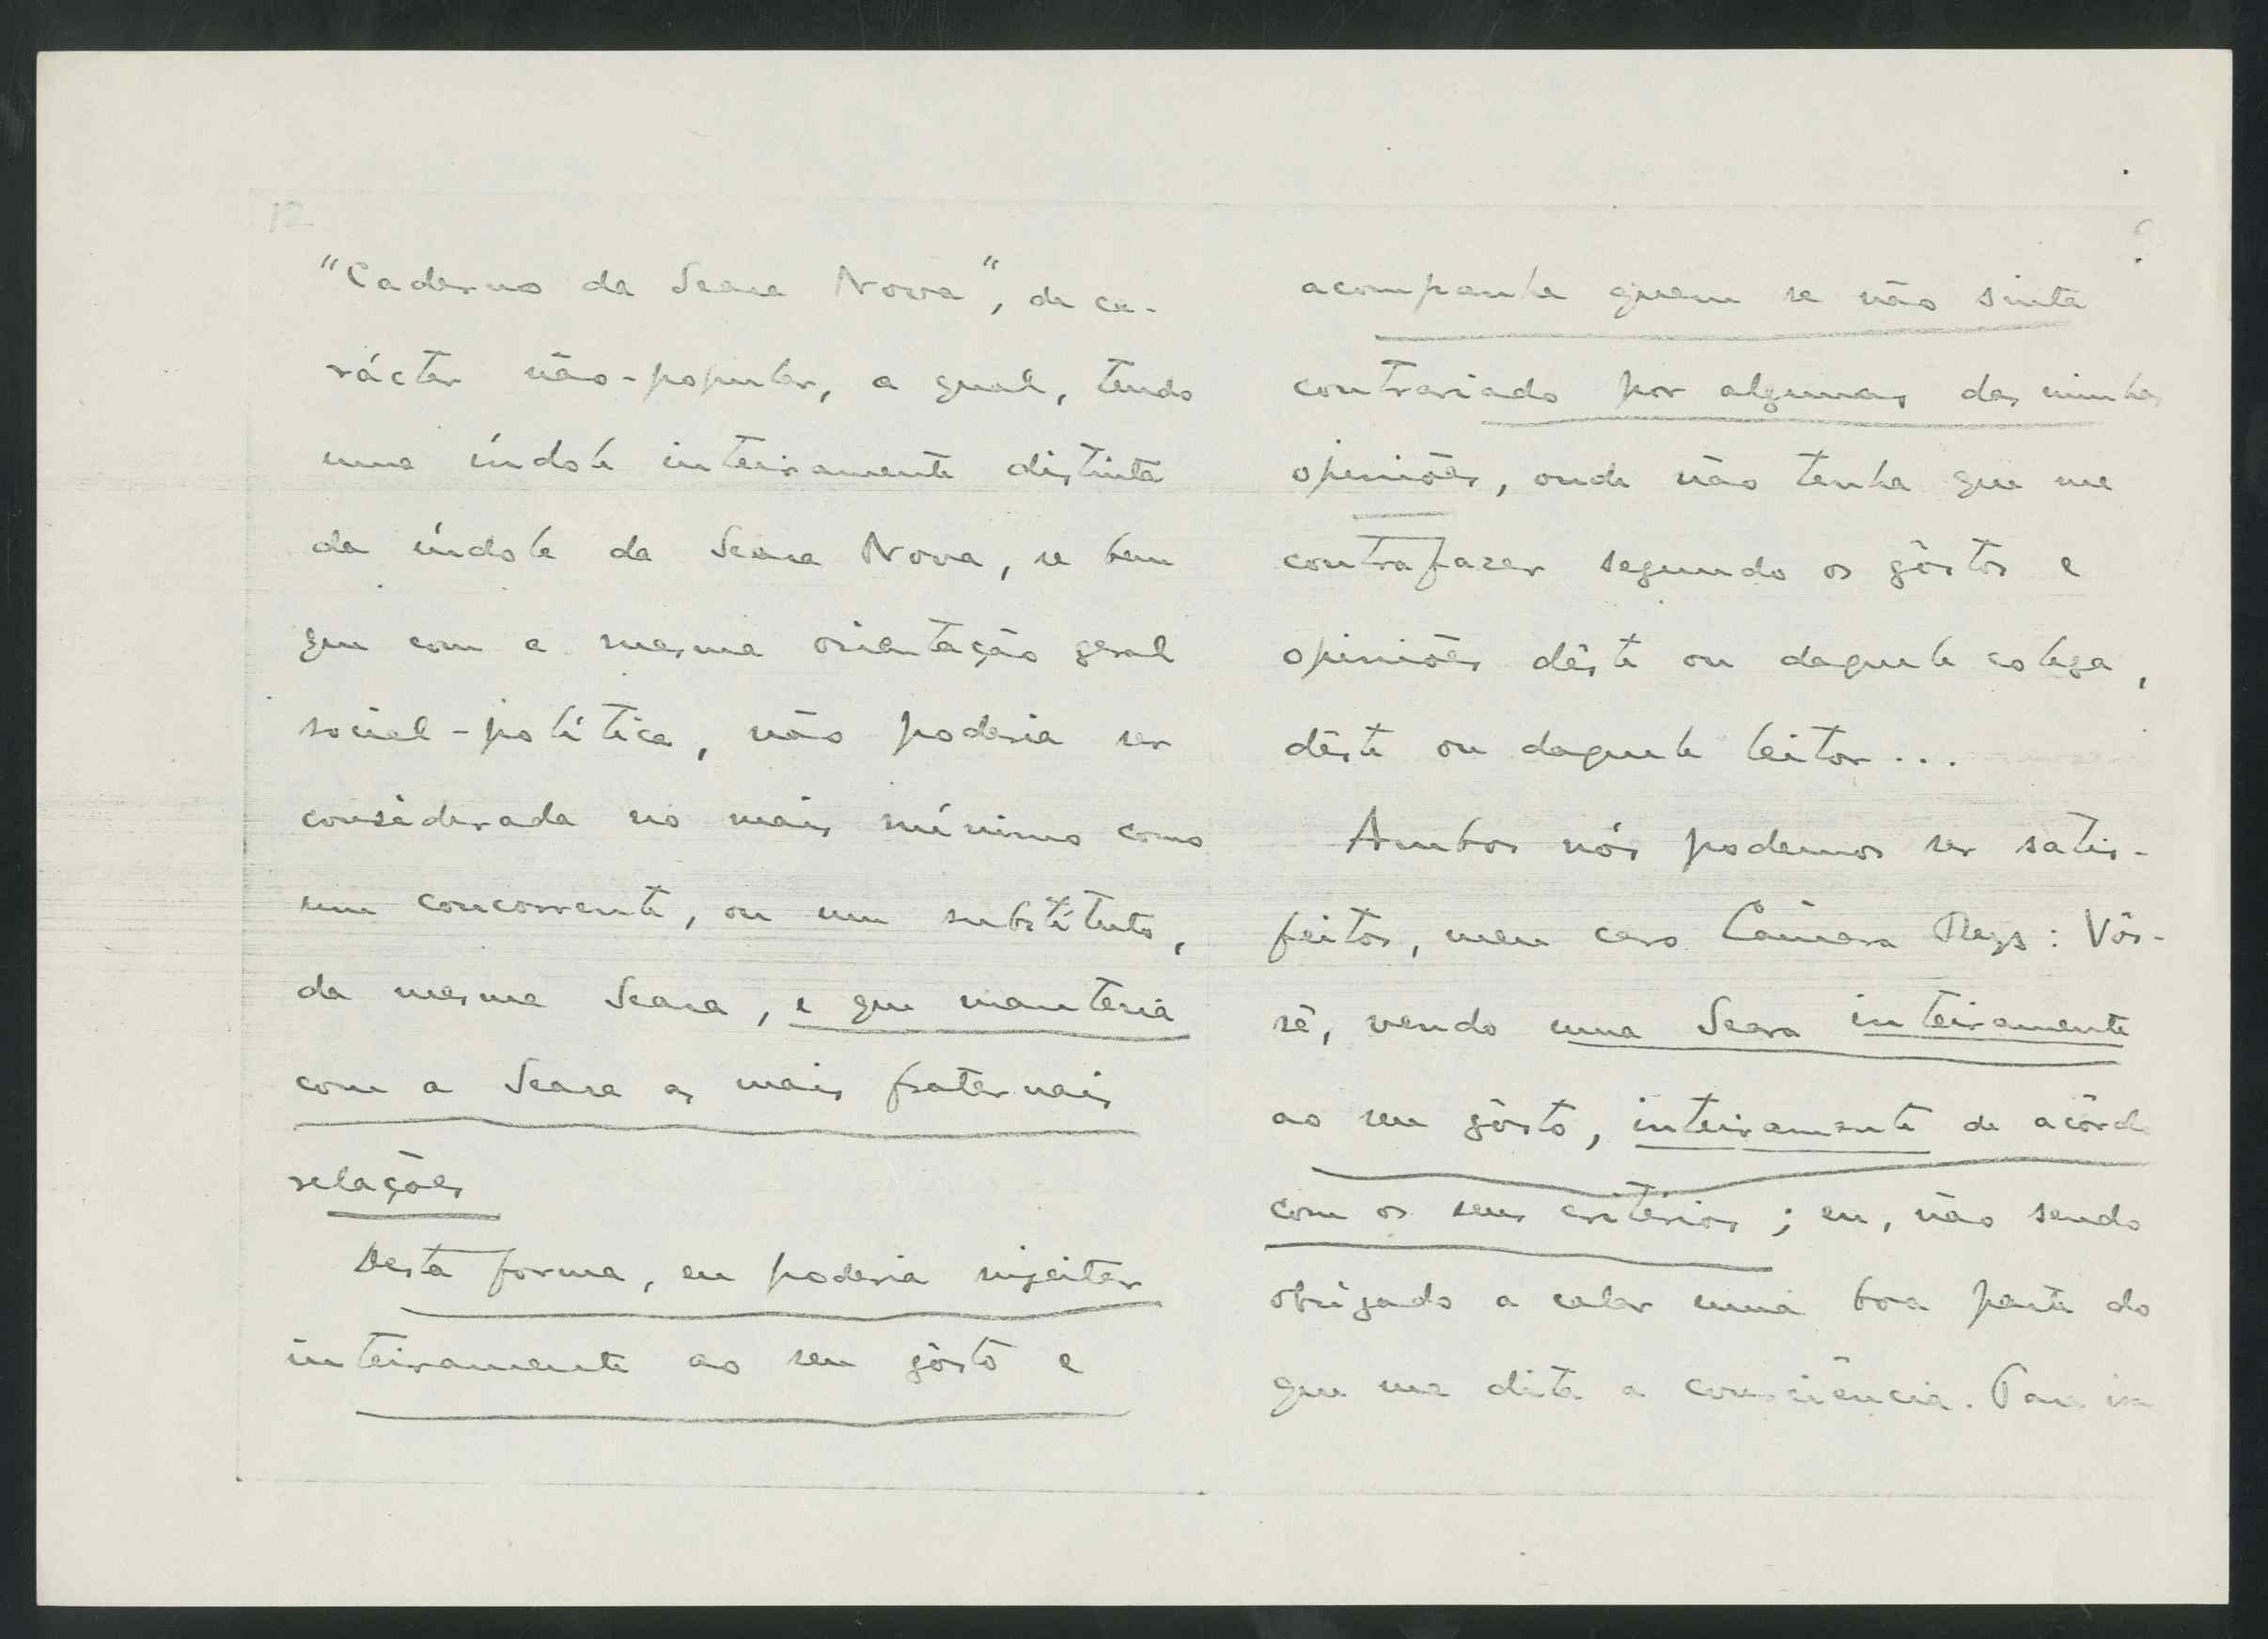 12
"Caderno da Seara Nova", de ca-
rácter não-popular, a qual, tendo
uma índole inteiramente distinta
da índole da Seara Nova, se bem
que com a mesma orientação geral
social-política, não poderia ser
considerada no mais mínimo como
um concorrente, ou um substituto,
da mesma Seara, e que manteria
com a Seara as mais fraternais
relações
Desta forma, eu poderia
inteiramente ao seu gôsto e
acompanha quem se não sinta
contrariado por algumas das minhas
opiniões, onde não tenha que me
contrafazer segundo os gôstos e
opiniões dêste ou daquele colega,
dêste ou daquele leitor...
Ambos nós podemos ser satis-
feitos, meu caro Câmara Reys: Vo-
sê, vendo uma Seara inteiramente
ao seu gôsto, inteiramente de acôrdo
com os seus critérios; eu, não sendo
obrigado a calar uma boa parte do
que me dita a consciência. Para